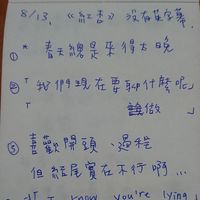 8/13. 《紅杏》 沒有英字幕
① * 春天總是來得太晚
② 「我們現在要聊什麼呢」
「 誰做」
③ 喜歡開頭、過程
但結尾實在不行啊...
I know you're lying